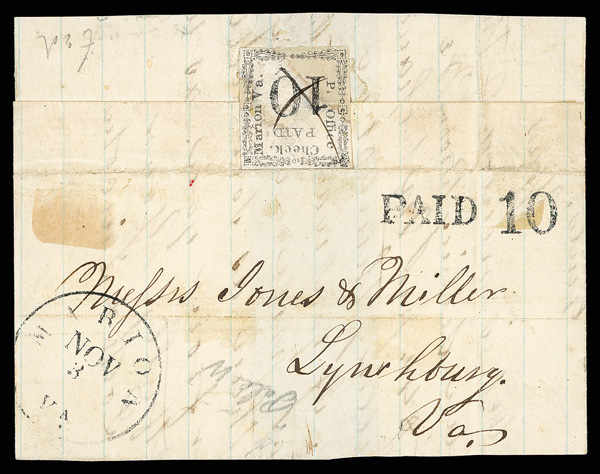 Marion Va.
P. Office
10
PAID
Check.
PAID 10
Messrs Jones & Miller
Lynchburg.
Va.
MARION
NOV
3
VA.